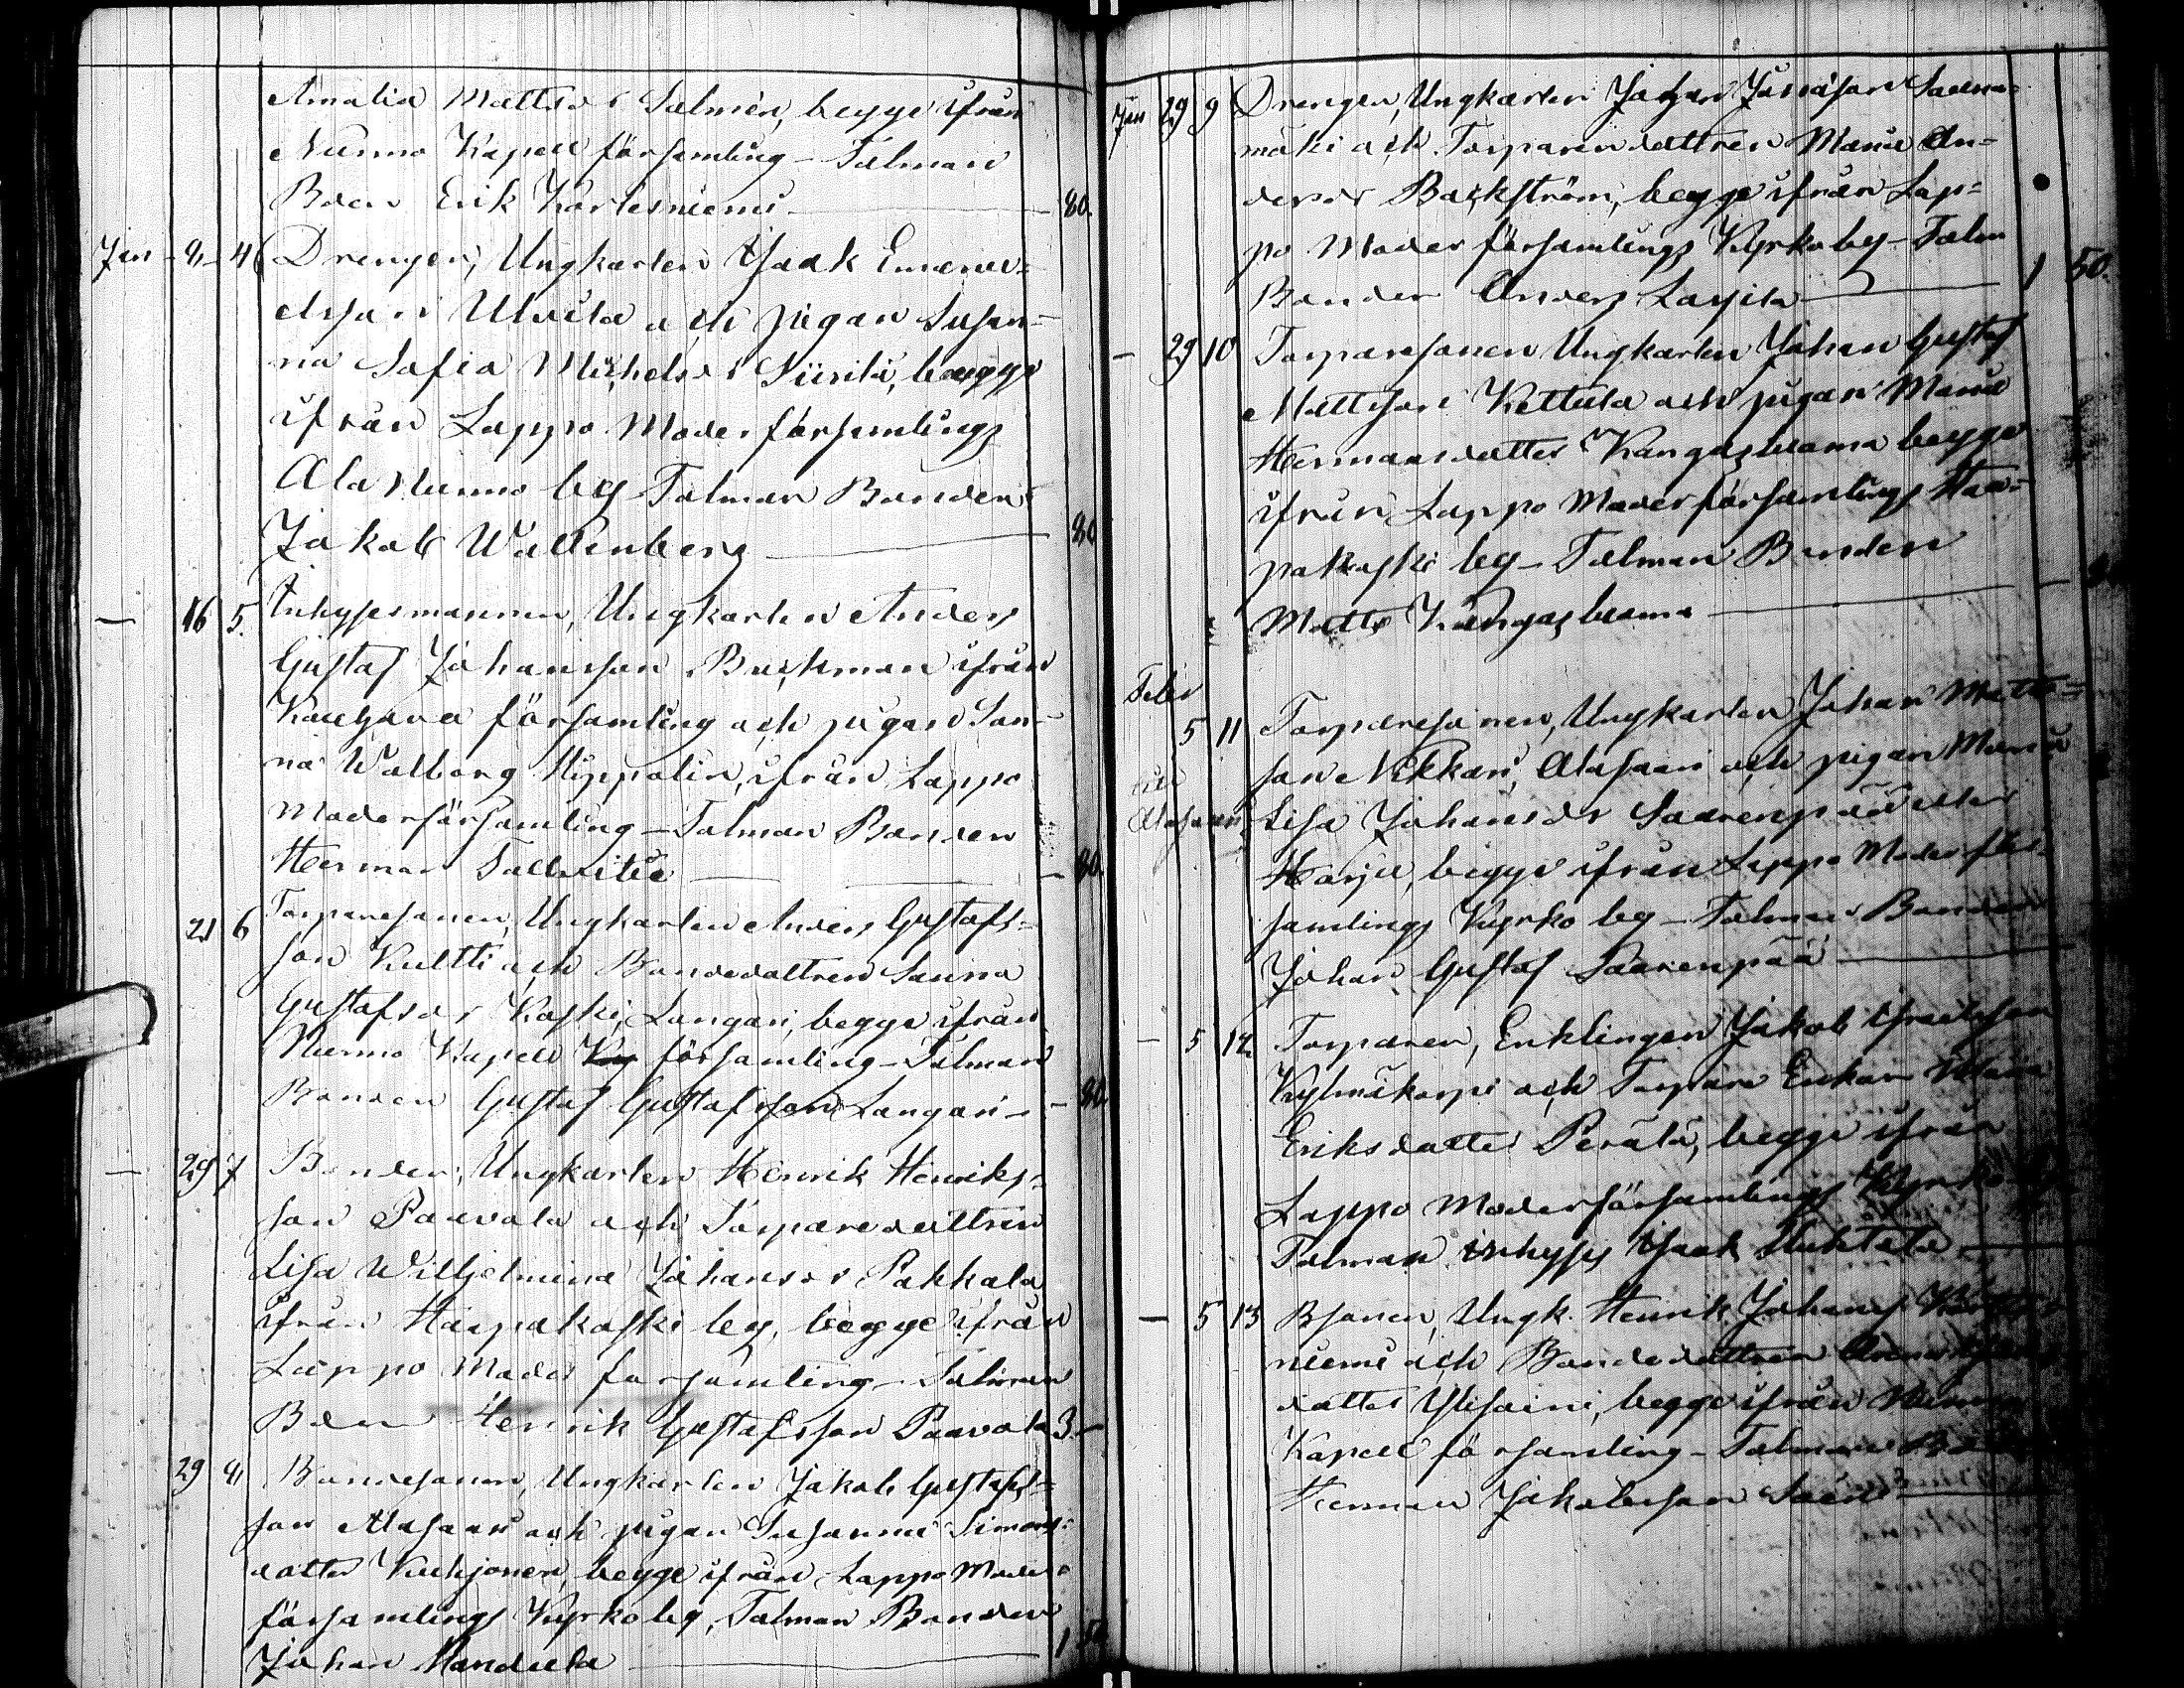 Amalia Mattsdr Salmén, begge ifrån
Nurmo Kapell församling - Talman
Bden Erik Karlesniemi 80.
Jan 8 4 Drengen, Ungkarlen Isaak Emanu=
elsson Ulvila och pigan Susan=
na Sofia Michelsdr Niirilä, begge
ifrån Lappo Moderförsamlings
Ala Nurmo by Talman Bonden
Jakob Wallenberg 80
— 16 5. Inhysesmannen, Ungkarlen Anders
Gustaf Johansson Backman ifrån
Kauhava församling och pigan San=
na Walborg Hyppolin, ifrån Lappo
Moderförsamling - Talman Bonden
Herman Tallvitie — 80.
21 6 Torparesonen, Ungkarlen Anders Gustafs=
son Kultti och Bondedottren Sanna
Gustafsdr Koski, Langari, begge ifrån
Nurmo Kapell församling - Talman
Bonden Gustaf Gustafsson Langari - 80.
— 29 7 Bonden, Ungkarlen Henrik Henriks=
son Paavola och Torparedottren
Lisa Wilhjelmina Johansdr Pakkala
ifrån Haapakoski by, begge ifrån
Lappo Moder församling - Talman
Bden Henrik Gustafsson Paavola 3 -
29 8 Bondesonen, Ungkarlen Jakob Gustafs=
son Alasaari och pigan Susanna Simons=
dotter Kuhjonen, begge ifrån Lappo Moder=
församlings Kyrkoby, Talman Bonden
Johan Mandula 1 50
Jan 29 9 Drengen, Ungkarlen Johan Jonasson SaUna=
mäki och Torparendottren Maria An=
dersdr Backström, begge ifrån Lap=
po Moder församlings Kyrkoby - Talm
Bonden Anders Lassila 1 50.
— 29 10 Torparesonen Ungkarlen Johan Gustaf
Mattsson Kettula och pigan Maria
Hermansdotter Kangasluoma begge
ifrån Lappo Moderförsamlings Haa=
pakoski by - Talman Bonden
Matts Kangasluoma —
Febr
5 11 Torparesonen, Ungkarlen Johan Matts=
son Nikkari, Alasaari och pigan Maria
Alasaari Lisa Johansdr Saarenpää eller
Harju, begge ifrån Lappo Moderför=
samlings Kyrko by - Talman Bonden
Johan Gustaf Saarenpää —
— 5 12 Torparen, Enklingen Jakob Israelsson
Kylmäkorpi och Torpare Enkan Maria
Eriksdotter Perälä, begge ifrån
Lappo Moderförsamlings Kyrko
Talman inhyses Isaak Huhtala —
— 5 13 Bsonen, Ungk. Henrik Johans
niemi och Bondedottren
dotter Ylisaari, begge ifrån Nurmo
Kapell församling - Talman
Herman Jakobsson Saari